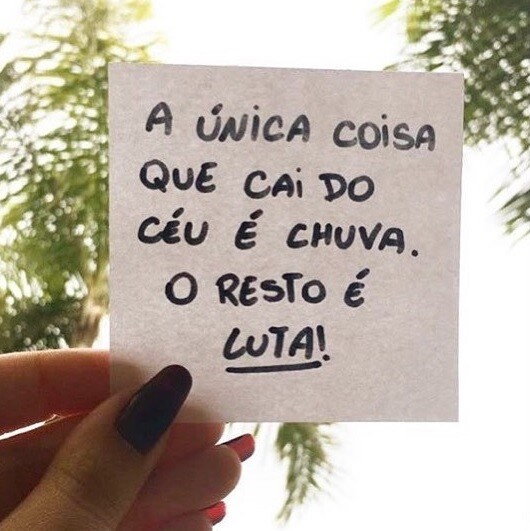 A ÚNICA COISA
QUE CAI DO
CÉU É CHUVA.
O RESTO É
LUTA!